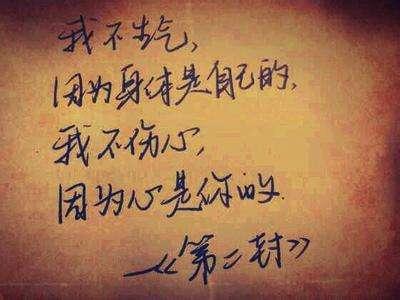 我不生气,
因为身体是自己的,
我不伤心,
因为心是你的.
《第二封》